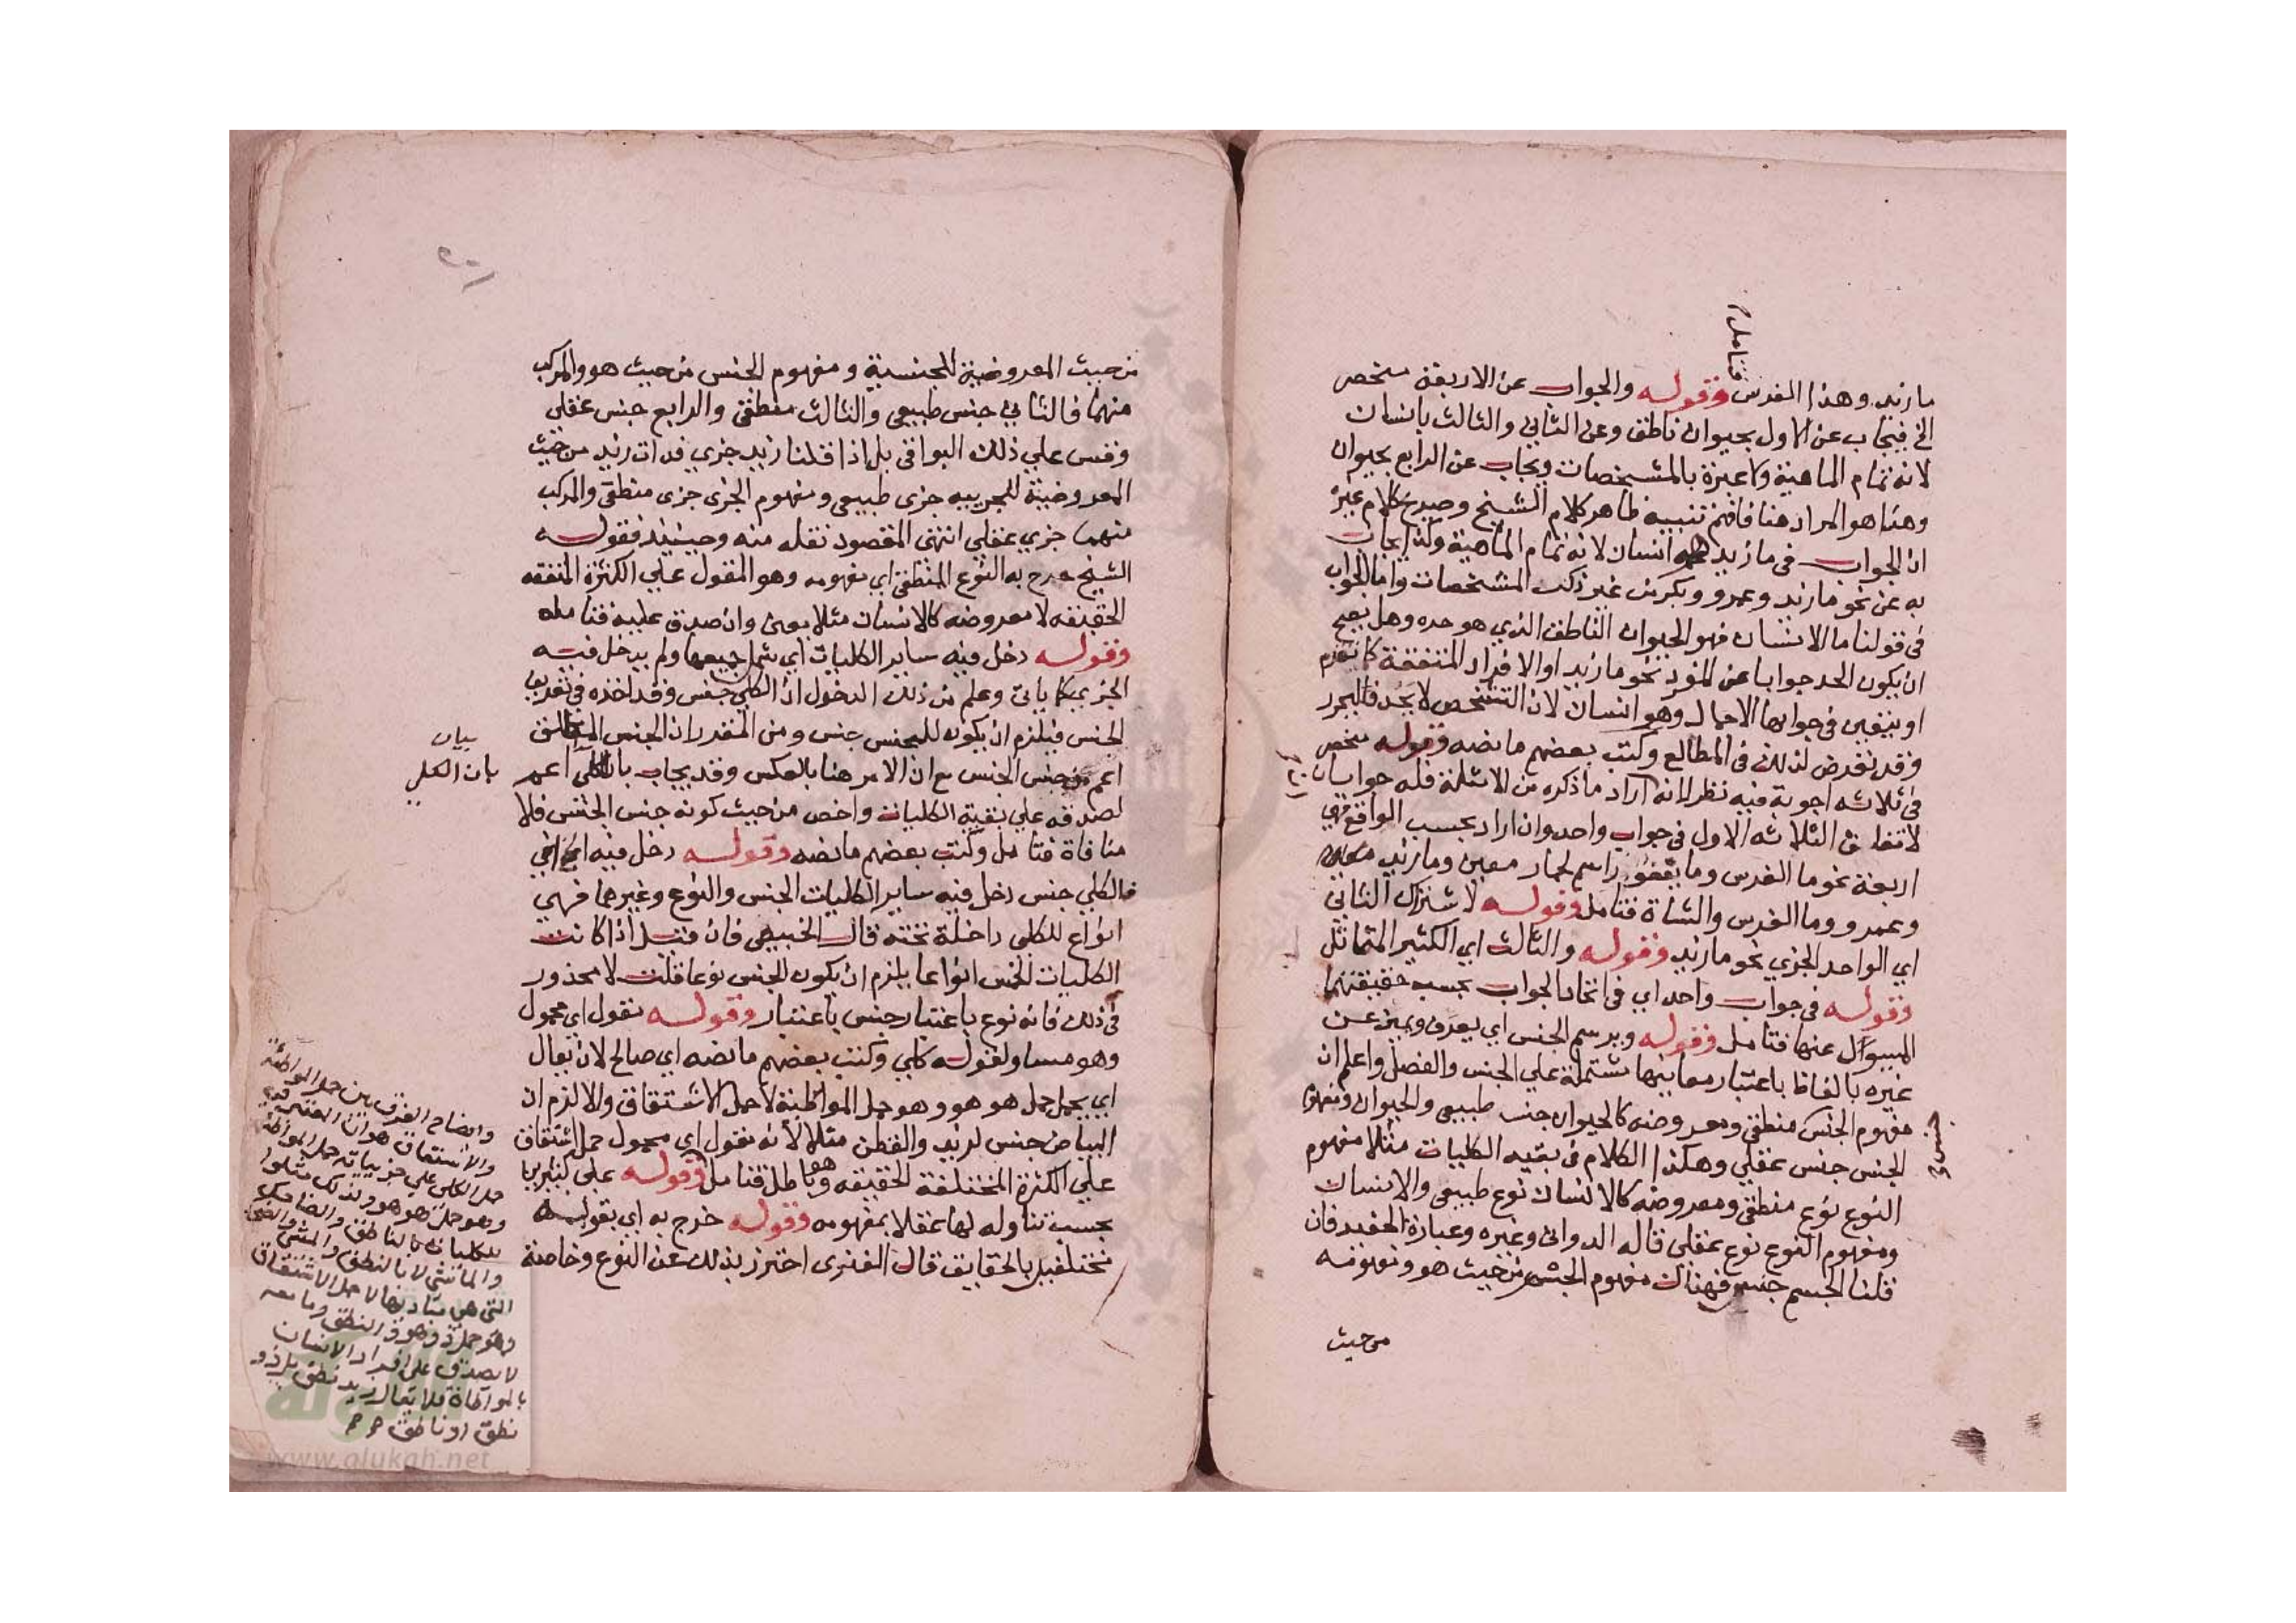 فتامل
ما زيد وهذا الفرس وقوله والجواب عن الاربعة منحصر
الخ فيجاب عن الاول بحيوان ناطق وعن الثاني والثالث بانسان
لانه تمام الماهية ولا عبرة بالمشخصات ويجاب عن الرابع بحيوان
وهذا هو المراد هنا فافهم تنبيه ظاهر كلام الشيخ وصريح كلام غيره
ان الجواب في ما زيد انسان لانه تمام الماهية وكذا يجاب
به عن نحو ما زيد وعمرو وبكر من غير ذكر المشخصات واما الجواب
في قولنا ما الانسان فهو الحيوان الناطق الذي هو حده وهل يصح
ان يكون الحد جوابا عن المفرد نحو ما زيد او الافراد المتفقة كما تقدم
او يتعين في جوابها الاجمال وهو انسان لان التشخص لا يحد فليحرر
وقد تعرض لذلك في المطالع وكتب بعضهم ما نصه وقوله منحصر
في ثلاثه اجوبة فيه نظر لانه ان اراد ما ذكره من الاسئلة فله جوابان
لاتفاق الثلاثه الاول في جواب واحد وان اراد بحسب الواقع فهي
اربعة نحو ما الفرس وما اسم لحمار معين وما زيد
وعمرو وما الفرس والشاة فتامل وقوله لاشتراك الثاني
اي الواحد الجزي نحو ما زيد وقوله والثالث اي الكثير المتماثل
وقوله في جواب واحد اي في اتحاد الجواب بحسب حقيقتهما
المسوال عنها فتامل وقوله ويرسم الجنس اي يعرف ويميز عن
غيره بالفاظ باعتبار معانيها مشتملة علي الجنس والفصل واعلم ان
مفهوم الجنس منطقي ومعروضه كالحيوان جنس طبيعي والحيوان ومفهوم
الجنس جنس عقلي وهكذا الكلام في بقيه الكليات مثلا مفهوم
النوع نوع منطقي ومعروضه كالانسان نوع طبيعي والانسان
ومفهوم النوع نوع عقلي قاله الدواني وغيره وعبارة الحفيد فان
قلنا الجسم جنس فهناك مفهوم الجسم من حيث هو ومفهومه
من حيث
من حيث المعروضية للجنسية ومفهوم الجنس من حيث هو والمركب
منهما فالثاني جنس طبيعي والثالث منطقي والرابع جنس عقلي
وقس علي ذلك البواقي بل اذا قلنا زيد جزي فذات زيد من حيث
المعروضية للجزييه جزي طبيعي ومفهوم الجزي جزي منطقي والمركب
منهما جزي عقلي انتهي المقصود نقله منه وحينيذ فقول
الشيخ خرج به النوع المنطقي اي مفهومه وهو المقول علي الكثرة المتفقه
الحقيقه لا معروضه كالانسان مثلا يعني وان صدق عليه فتامله
وقوله دخل فيه ساير الكليات اي شمل جميعها ولم يدخل فيه
الجزي كما ياتي وعلم من ذلك الدخول ان الكلي جنس وقد اخذه في تعريف
الجنس فيلزم ان يكون للجنس جنس ومن المقرر ان الجنس المطلق
اعم من جنس الجنس مع ان الامر هنا بالعكس وقد يجاب بان الكلي اعم
بيان
بان الكلي
لصدقه علي بقية الكليات واخص من حيث كونه جنس الجنس فلا
منافاة فتامل وكتب بعضهم ما نصه وقوله دخل فيه اي في
فالكلي جنس دخل فيه ساير الكليات الجنس والنوع وغيرهما فهي
انواع للكلي داخلة تحته قال الخبيصي فان قيل اذا كانت
الكليات الخمس انواعا يلزم ان يكون الجنس نوعا قلت لا محذور
في ذلك فانه نوع باعتبار جنس باعتبار وقوله مقول اي محمول
وهو مساو لقوله كلي وكتب بعضهم ما نصه اي صالح لان يقال
اي يحمل حمل هو هو وهو حمل المواطئة لا حمل الاشتقاق والا لزم ان
البياض جنس لزيد والقطن مثلا لانه مقول اي محمول حمل اشتقاق
علي الكثرة المختلفة الحقيقه وهو باطل فتامل وقوله علي كثيرين
بحسب تناوله لها عقلا بمفهومه وقوله خرج به اي بقوله
مختلفين بالحقايق قال الفنري احترز بذلك عن النوع وخاصته
وايضاح الفرق بين حمل المواطئة
والاشتقاق هو ان
حمل الكلي علي جزيياته حمل المواطئة
وهو حمل هو هو ولذلك مثلوا
للكليات بالناطق والضاحك
والماشي لا بالنطق والمشي والضحك
التي هي مباديها لا حمل الاشتقاق
وهو حمل ذو هو فالنطق وما معه
لا يصدق علي افراد الانسان
بالمواطاة فلا يقال زيد نطق بل ذو
نطق او ناطق
www.alukah.net